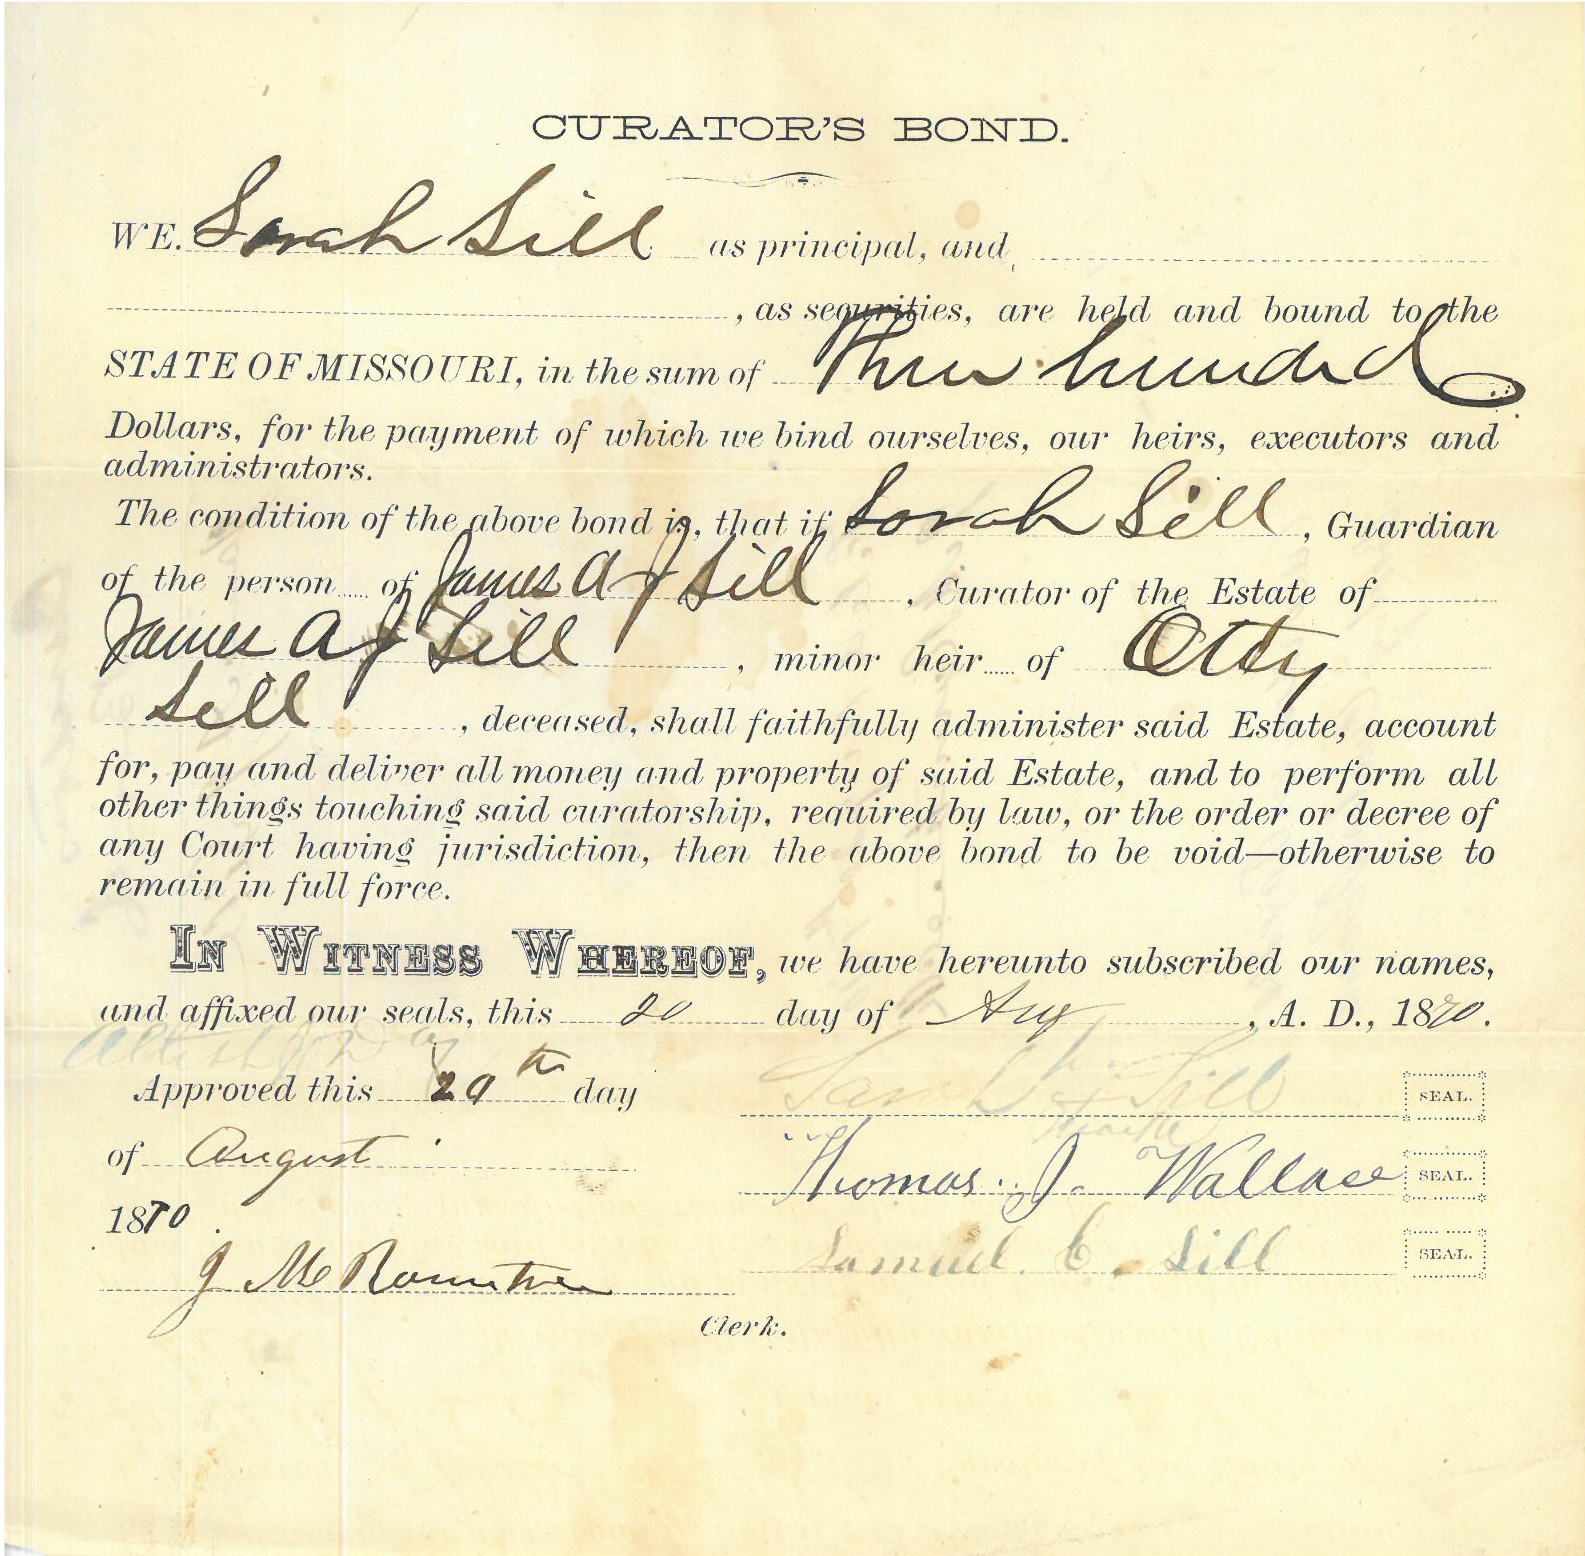 CURATOR'S BOND.
WE. Sarah Sill as principal, and
, as securities, are held and bound to the
STATE OF MISSOURI, in the sum of Three hundred
Dollars, for the payment of which we bind ourselves, our heirs, executors and
administrators.
The condition of the above bond is, that if Sarah Sill, Guardian
of the person of James A J Sill, Curator of the Estate of
James A J Sill, minor heir of Otty
Sill, deceased, shall faithfully administer said Estate, account
for, pay and deliver all money and property of said Estate, and to perform all
other things touching said curatorship, required by law, or the order or decree of
any Court having jurisdiction, then the above bond to be void—otherwise to
remain in full force.
IN WITNESS WHEREOF, we have hereunto subscribed our names,
and affixed our seals, this 20 day of Aug, A. D., 1870.
Approved this 29th day
of August
1870.
J M Rountree
Clerk.
Sarah Sill SEAL.
Thomas J. Wallace SEAL.
Samuel C. Sill SEAL.